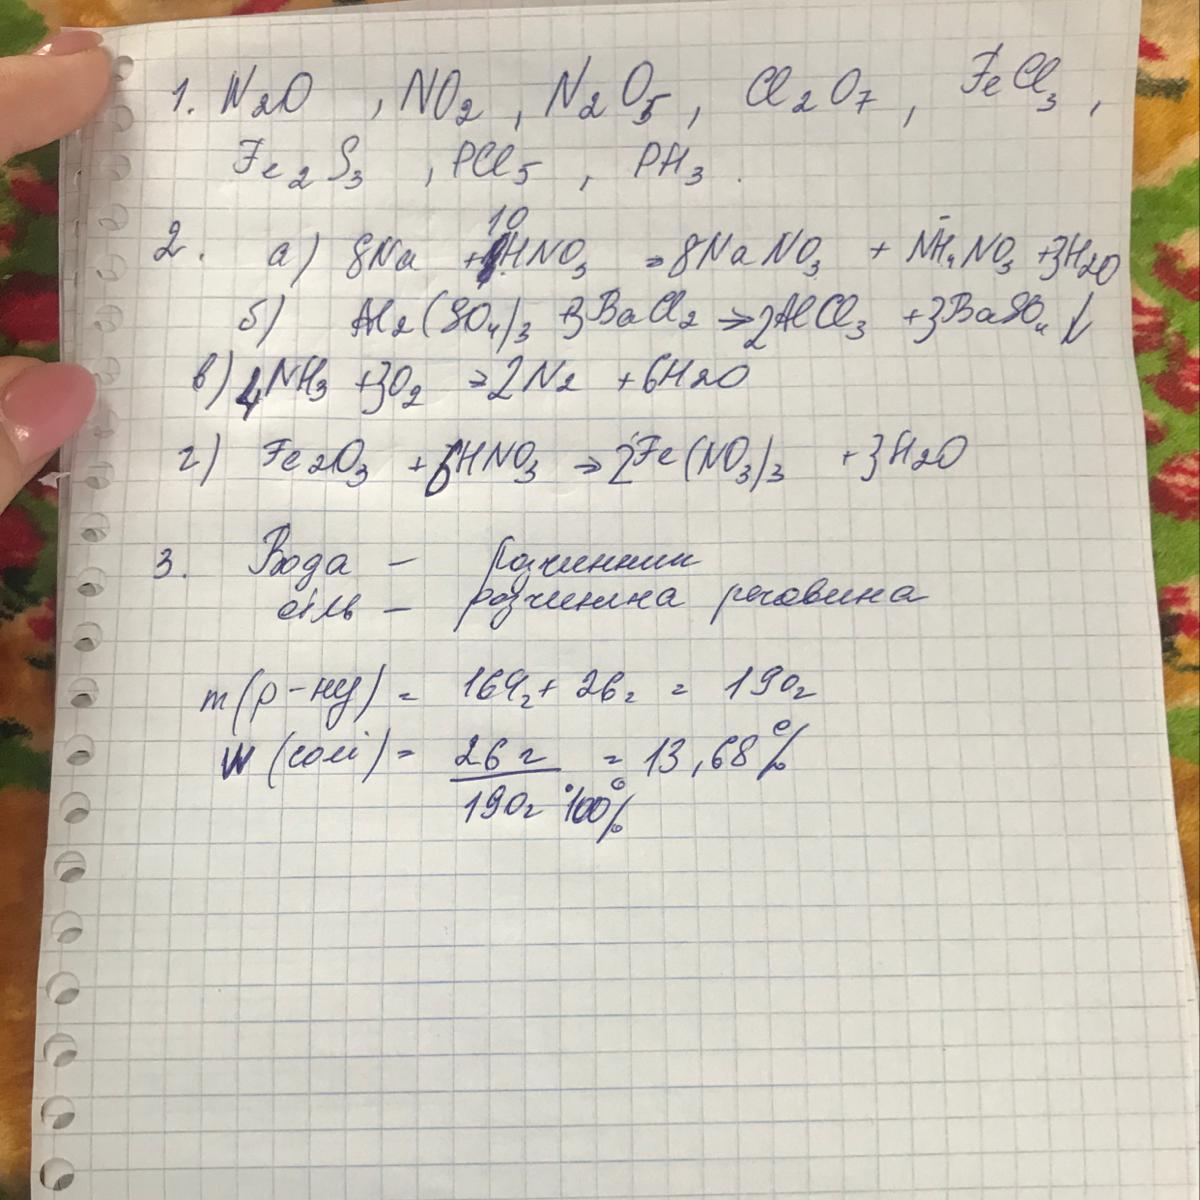 1. N2O , NO2 , N2O5 , Cl2O7 , FeCl3 ,
Fe2S3 , PCl5 , PH3 .
2. а) 8Na + 10HNO3 → 8NaNO3 + NH4NO3 + 3H2O
б) Al2(SO4)3 + 3BaCl2 → 2AlCl3 + 3BaSO4 ↓
в) 4NH3 + 3O2 → 2N2 + 6H2O
г) Fe2O3 + 6HNO3 → 2Fe(NO3)3 + 3H2O
3. Вода – розчинник
сіль – розчинна речовина
m(р-ну) = 164г + 26г = 190г
W(солі) = 26г / 190г · 100% = 13,68%